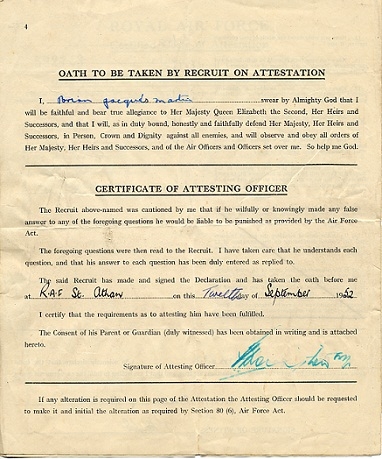 4
OATH TO BE TAKEN BY RECRUIT ON ATTESTATION
I, Brian Jacques Martin swear by Almighty God that I
will be faithful and bear true allegiance to Her Majesty Queen Elizabeth the Second, Her Heirs and
Successors, and that I will, as in duty bound, honestly and faithfully defend Her Majesty, Her Heirs and
Successors, in Person, Crown and Dignity against all enemies, and will observe and obey all orders of
Her Majesty, Her Heirs and Successors, and of the Air Officers and Officers set over me. So help me God.
CERTIFICATE OF ATTESTING OFFICER
The Recruit above-named was cautioned by me that if he wilfully or knowingly made any false
answer to any of the foregoing questions he would be liable to be punished as provided by the Air Force
Act.
The foregoing questions were then read to the Recruit. I have taken care that he understands each
question, and that his answer to each question has been duly entered as replied to.
The said Recruit has made and signed the Declaration and has taken the oath before me
at R.A.F St. Athan on this Twelfth day of September 1952
I certify that the requirements as to attesting him have been fulfilled.
The Consent of his Parent or Guardian (duly witnessed) has been obtained in writing and is attached
hereto.
Signature of Attesting Officer
If any alteration is required on this page of the Attestation the Attesting Officer should be requested
to make it and initial the alteration as required by Section 80 (6), Air Force Act.